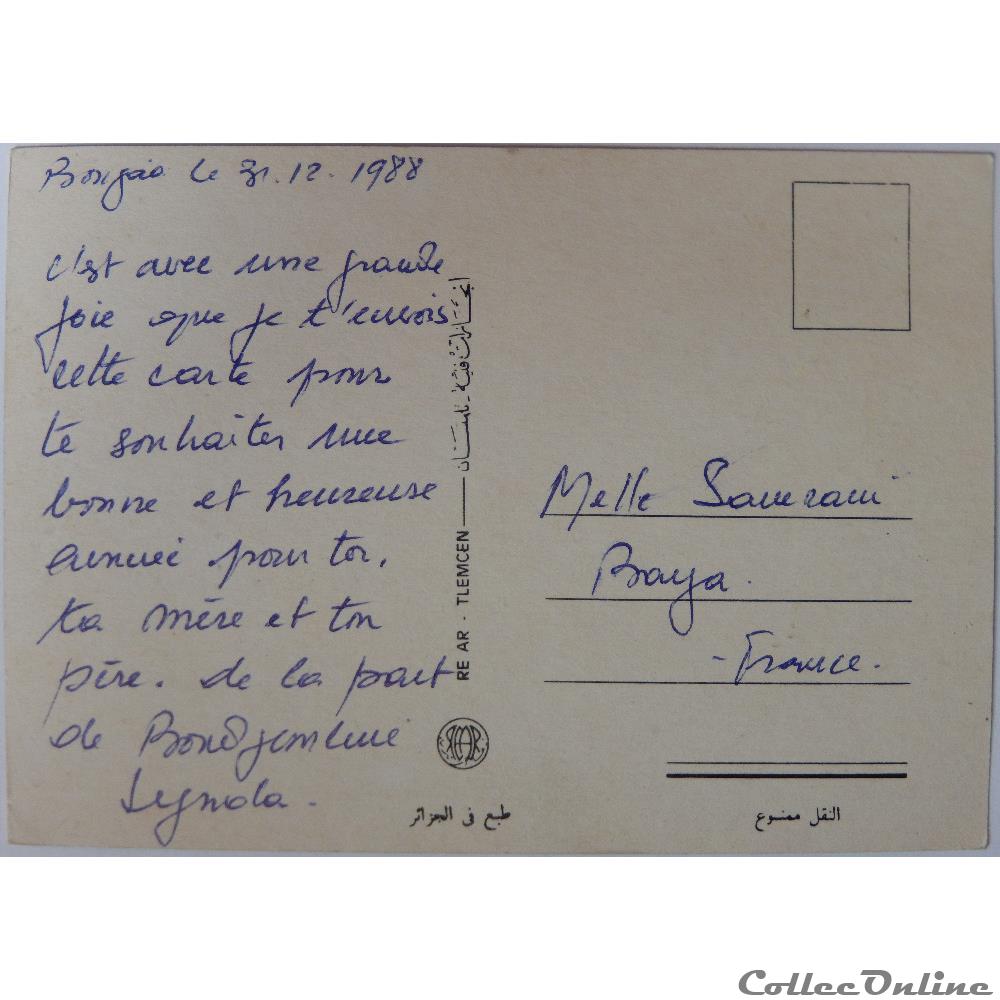 Bougie le 31.12.1988
c'est avec une grande
joie que je t'envois
cette carte pour
te souhaiter une
bonne et heureuse
année pour toi,
ta mère et ton
père. de la part
de Boudjemline
Lynda.
RE AR - TLEMCEN
Melle Samraui
Baya.
- France.
طبع في الجزائر
النقل ممنوع
CollecOnline